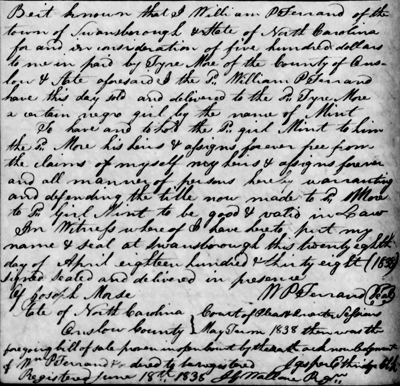 Be it known that I William P Ferrand of the
town of Swansborough & State of North Carolina
for and in consideration of five hundred dollars
to me in paid by Tyre Moe of the County of Ons-
low & State aforesaid I the Sd William P Ferrand
have this day sold and delivered to the Sd Tyre More
a certain negro girl by the name of Mint
To have and to hold the Sd girl Mint to him
the Sd More his heirs & assigns forever free from
the claims of myself my heirs & assigns forever
and all manner of persons hereby warranting
and defending the title now made to Sd More
to Sd Girl Mint to be good & valid in Law
In Witness where of I have here to put my
name & seal at Swansborough this twenty eighth
day of April eighteen hundred & thirty eight (1838)
signed sealed and delivered in presence
of Joseph Morse W P Ferrand (Seal)
State of North Carolina } Court of Pleas & Quarter Sessions
Onslow County } May Term 1838 then was the
foregoing bill of sale proven in open court by the acknowledgment
of Wm P Ferrand & ordered to be registered Jasper Ethridge Clk
Registered June 18th 1838 Regr